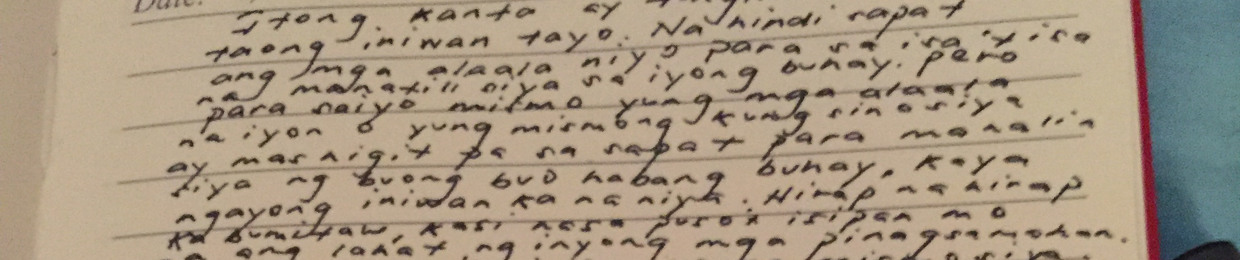 Date:
Itong kanta ay
taong iniwan tayo. Na hindi sapat
ang mga alaala niyo para sa isa't isa
na manatili siya sa iyong buhay. Pero
para saiyo mismo yung mga alaala
na iyon o yung mismong kung sino siya
ay mas higit pa sa sapat para mahalin
siya ng buong buo habang buhay. Kaya
ngayong iniwan ka na niya. Hirap na hirap
ka bumitaw, kasi nasa puso't isipan mo
ang lahat ng inyong mga pinagsamahan.